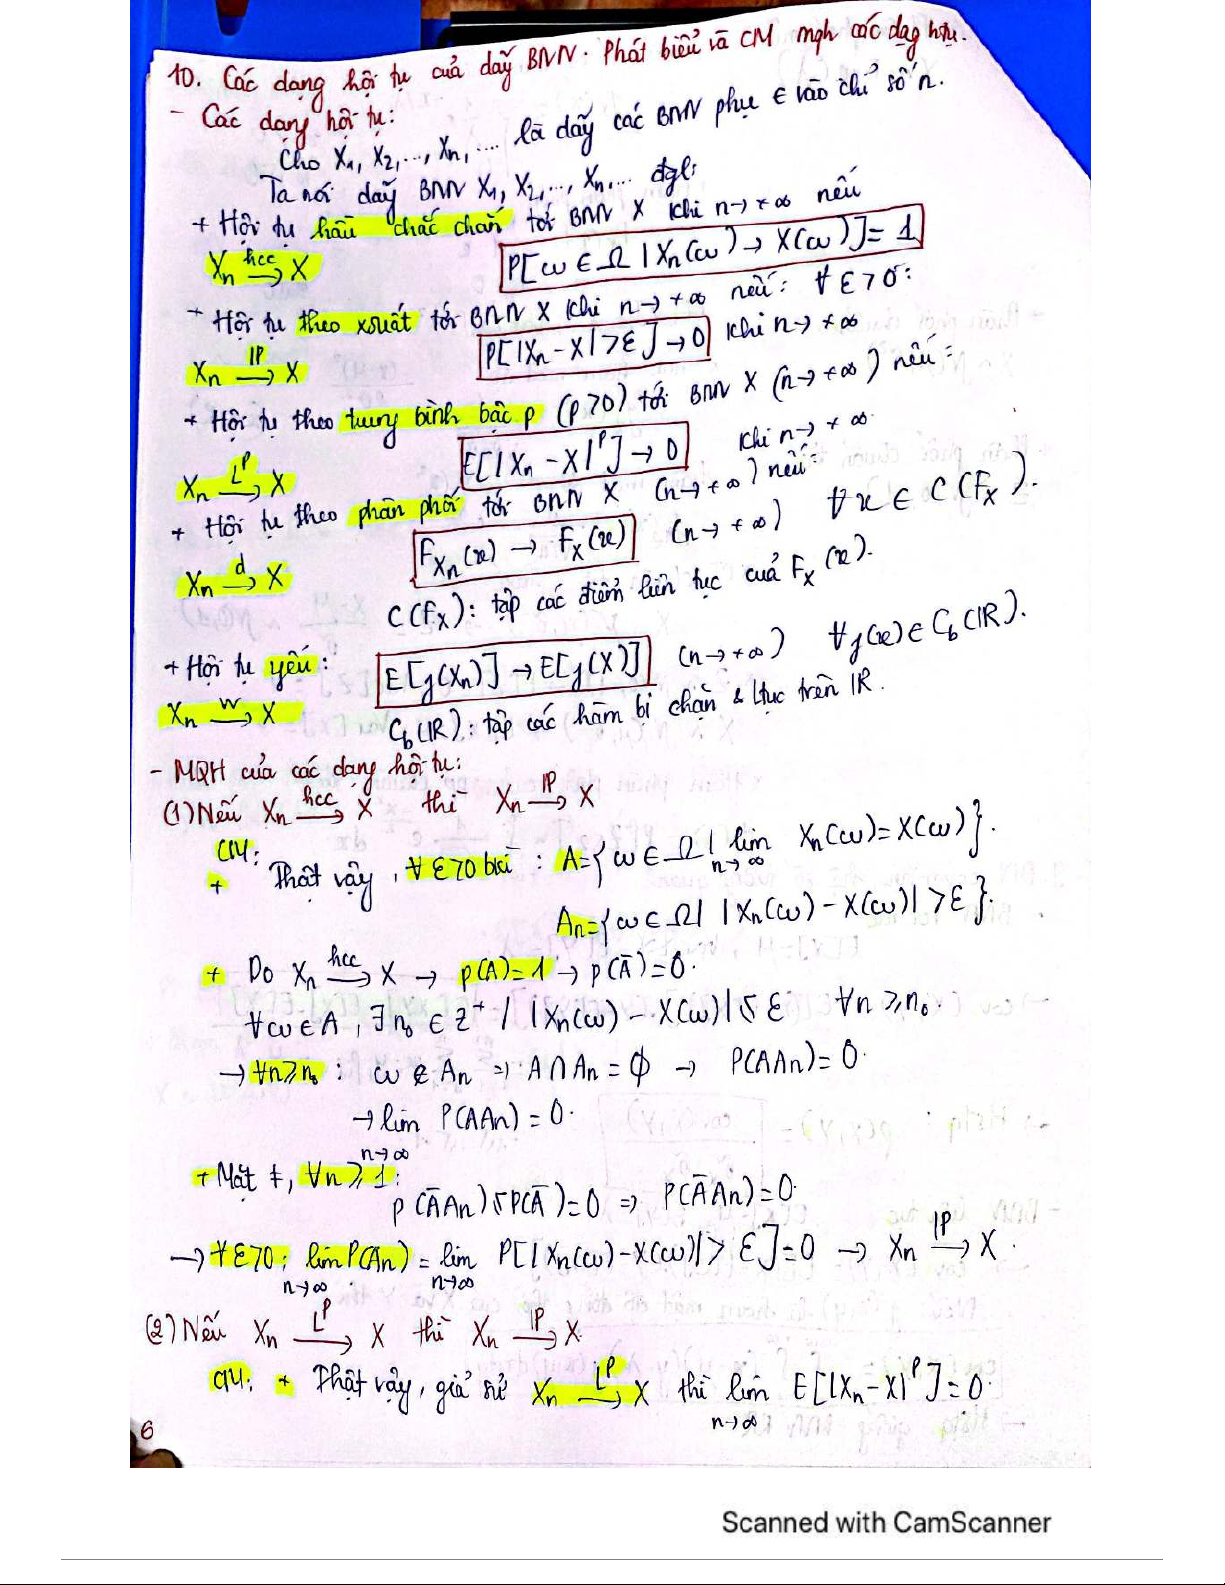 10. Các dạng hội tụ của dãy BNN. Phát biểu và CM mqh các dạg htụ.
- Các dạng hội tụ:
Cho X₁, X₂,..., Xₙ,.... là dãy các BNN phụ ∈ vào chỉ số n.
Ta nói dãy BNN X₁, X₂,..., Xₙ... đgl:
+ Hội tụ hầu chắc chắn tới BNN X khi n→+∞ nếu
Xₙ —hcc→ X P[ω ∈ Ω | Xₙ(ω) → X(ω)] = 1
+ Hội tụ theo xsuất tới BNN X khi n→+∞ nếu: ∀ε>0:
Xₙ —IP→ X P[|Xₙ - X| > ε] → 0 khi n→+∞
+ Hội tụ theo trung bình bậc p (p>0) tới BNN X (n→+∞) nếu:
Xₙ —Lᵖ→ X E[|Xₙ - X|ᵖ] → 0 khi n→+∞
+ Hội tụ theo phân phối tới BNN X (n→+∞) nếu:
Xₙ —d→ X F_Xₙ(x) → F_X(x) (n→+∞) ∀x ∈ C(F_X).
C(F_X): tập các điểm liên tục của F_X(x).
+ Hội tụ yếu: E[g(Xₙ)] → E[g(X)] (n→+∞) ∀g(x) ∈ C_b(IR).
Xₙ —w→ X C_b(IR): tập các hàm bị chặn & ltục trên IR.
- MQH của các dạng hội tụ:
(1) Nếu Xₙ —hcc→ X thì Xₙ —IP→ X
CM:
+ Thật vậy, ∀ε>0 bkì: A={ω ∈ Ω | lim n→∞ Xₙ(ω)=X(ω)}.
Aₙ={ω ∈ Ω | |Xₙ(ω) - X(ω)| > ε}.
+ Do Xₙ —hcc→ X → p(A)=1 → p(Ā)=0.
∀ω∈A, ∃n₀ ∈ Z⁺ / |Xₙ(ω) - X(ω)| ≤ ε ∀n ≥ n₀.
→ ∀n≥n₀: ω ∉ Aₙ ⇒ A∩Aₙ = ∅ → P(AAₙ)=0.
→ lim n→∞ P(AAₙ) = 0.
+ Mặt ≠, ∀n ≥ 1:
p(ĀAₙ) ≤ P(Ā)=0 ⇒ P(ĀAₙ)=0.
→ ∀ε>0: lim n→∞ P(Aₙ) = lim n→∞ P[|Xₙ(ω)-X(ω)| > ε]=0 → Xₙ —IP→ X.
(2) Nếu Xₙ —Lᵖ→ X thì Xₙ —IP→ X.
CM: + Thật vậy, giả sử Xₙ —Lᵖ→ X thì lim n→∞ E[|Xₙ-X|ᵖ]=0.
6
Scanned with CamScanner